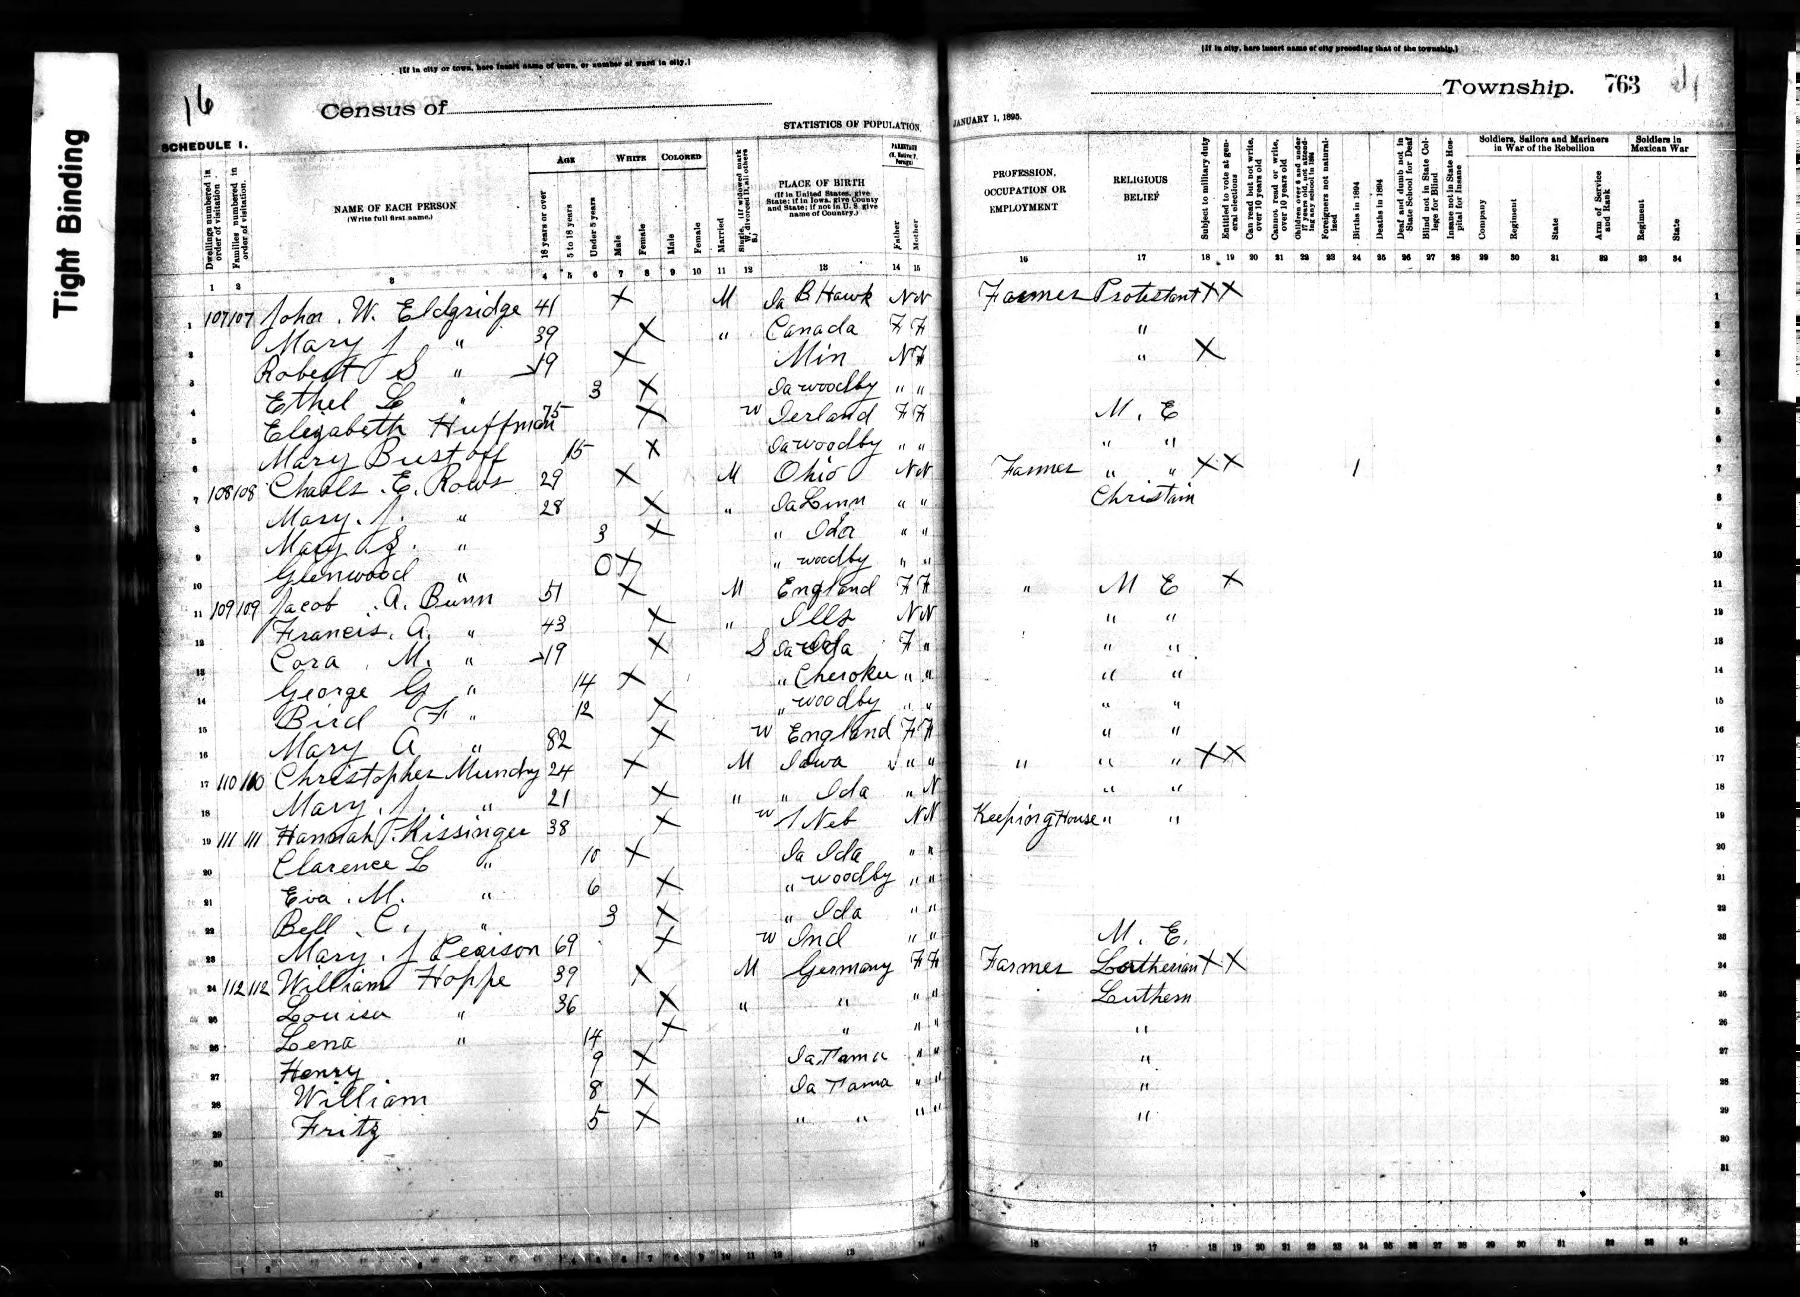 Tight Binding
[If in city or town, here insert name of town, or number of ward in city.]
(If in city, here insert name of city preceding that of the township.)
16
Census of
Township. 763
STATISTICS OF POPULATION, JANUARY 1, 1895.
SCHEDULE 1.
Dwellings numbered in order of visitation
Families numbered in order of visitation.
NAME OF EACH PERSON
(Write full first name.)
AGE
18 years or over
5 to 18 years
Under 5 years
WHITE
Male
Female
COLORED
Male
Female
Married
PLACE OF BIRTH
(If in United States, give State; if in Iowa, give County and State; if not in U. S. give name of Country.)
PARENTAGE
Father
Mother
PROFESSION, OCCUPATION OR EMPLOYMENT
RELIGIOUS BELIEF
Subject to military duty
Entitled to vote at general elections
Can read but not write, over 10 years old
Cannot read or write, over 10 years old
Children over 6 and under 17 years old, not attending any school in 1894
Foreigners not naturalized
Births in 1894
Deaths in 1894
Deaf and dumb not in State School for Deaf
Blind not in State College for Blind
Insane not in State Hospital for Insane
Soldiers, Sailors and Mariners in War of the Rebellion
Company
Regiment
State
Arm of Service and Rank
Soldiers in Mexican War
Regiment
State
1 2 3 4 5 6 7 8 9 10 11 12 13 14 15 16 17 18 19 20 21 22 23 24 25 26 27 28 29 30 31 32 33 34
1 107 107 John . W. Eldgridge 41 X M Ia B. Hawk N N Farmer Protestant X X 1
2 Mary J " 39 X " Canada F F " 2
3 Robert S " 19 X Min N F " X 3
4 Ethel L " 3 X Ia woodby " " 4
5 Elizabeth Huffman 75 X W Ierland F F M. E 5
6 Mary Bustoff 15 X Ia woodby " " " " 6
7 108 108 Charls . E. Rows 29 X M Ohio N N Farmer " " X X 1 7
8 Mary. J. " 28 X " Ia Linn " " Christain 8
9 Mary . " 3 X " Ida " " 9
10 Glenwood " 0 X " woodby " " 10
11 109 109 Jacob . A. Bunn 51 X M England F F " M E X 11
12 Francis. A. " 43 X " Ills N N " " 12
13 Cora . M. " 19 X S Ia Ida F " " " 13
14 George G " 14 X " Cherokee " " " " 14
15 Bird F " 12 X " woodby " " " " 15
16 Mary A " 82 X W England F F " " 16
17 110 110 Christopher Mundy 24 X M Iowa " " " " " X X 17
18 Mary. J. " 21 X " " Ida " N " " 18
19 111 111 Hannah . Kissinger 38 X W Neb N N Keeping House " " 19
20 Clarence L " 10 X Ia Ida " " 20
21 Eva . M. " 6 X " woodby " " 21
22 Bell . C. " 3 X " Ida " " 22
23 Mary . J Pearison 69 X W Ind " " M. E. 23
24 112 112 William Hoppe 39 X M Germany F F Farmer Lutherian X X 24
25 Louisa " 36 X " " " " Luthern 25
26 Lena " 14 X " " " " 26
27 Henry 9 X Ia Tama " " " 27
28 William 8 X Ia Tama " " " 28
29 Fritz 5 X " " " " " 29
30 30
31 31